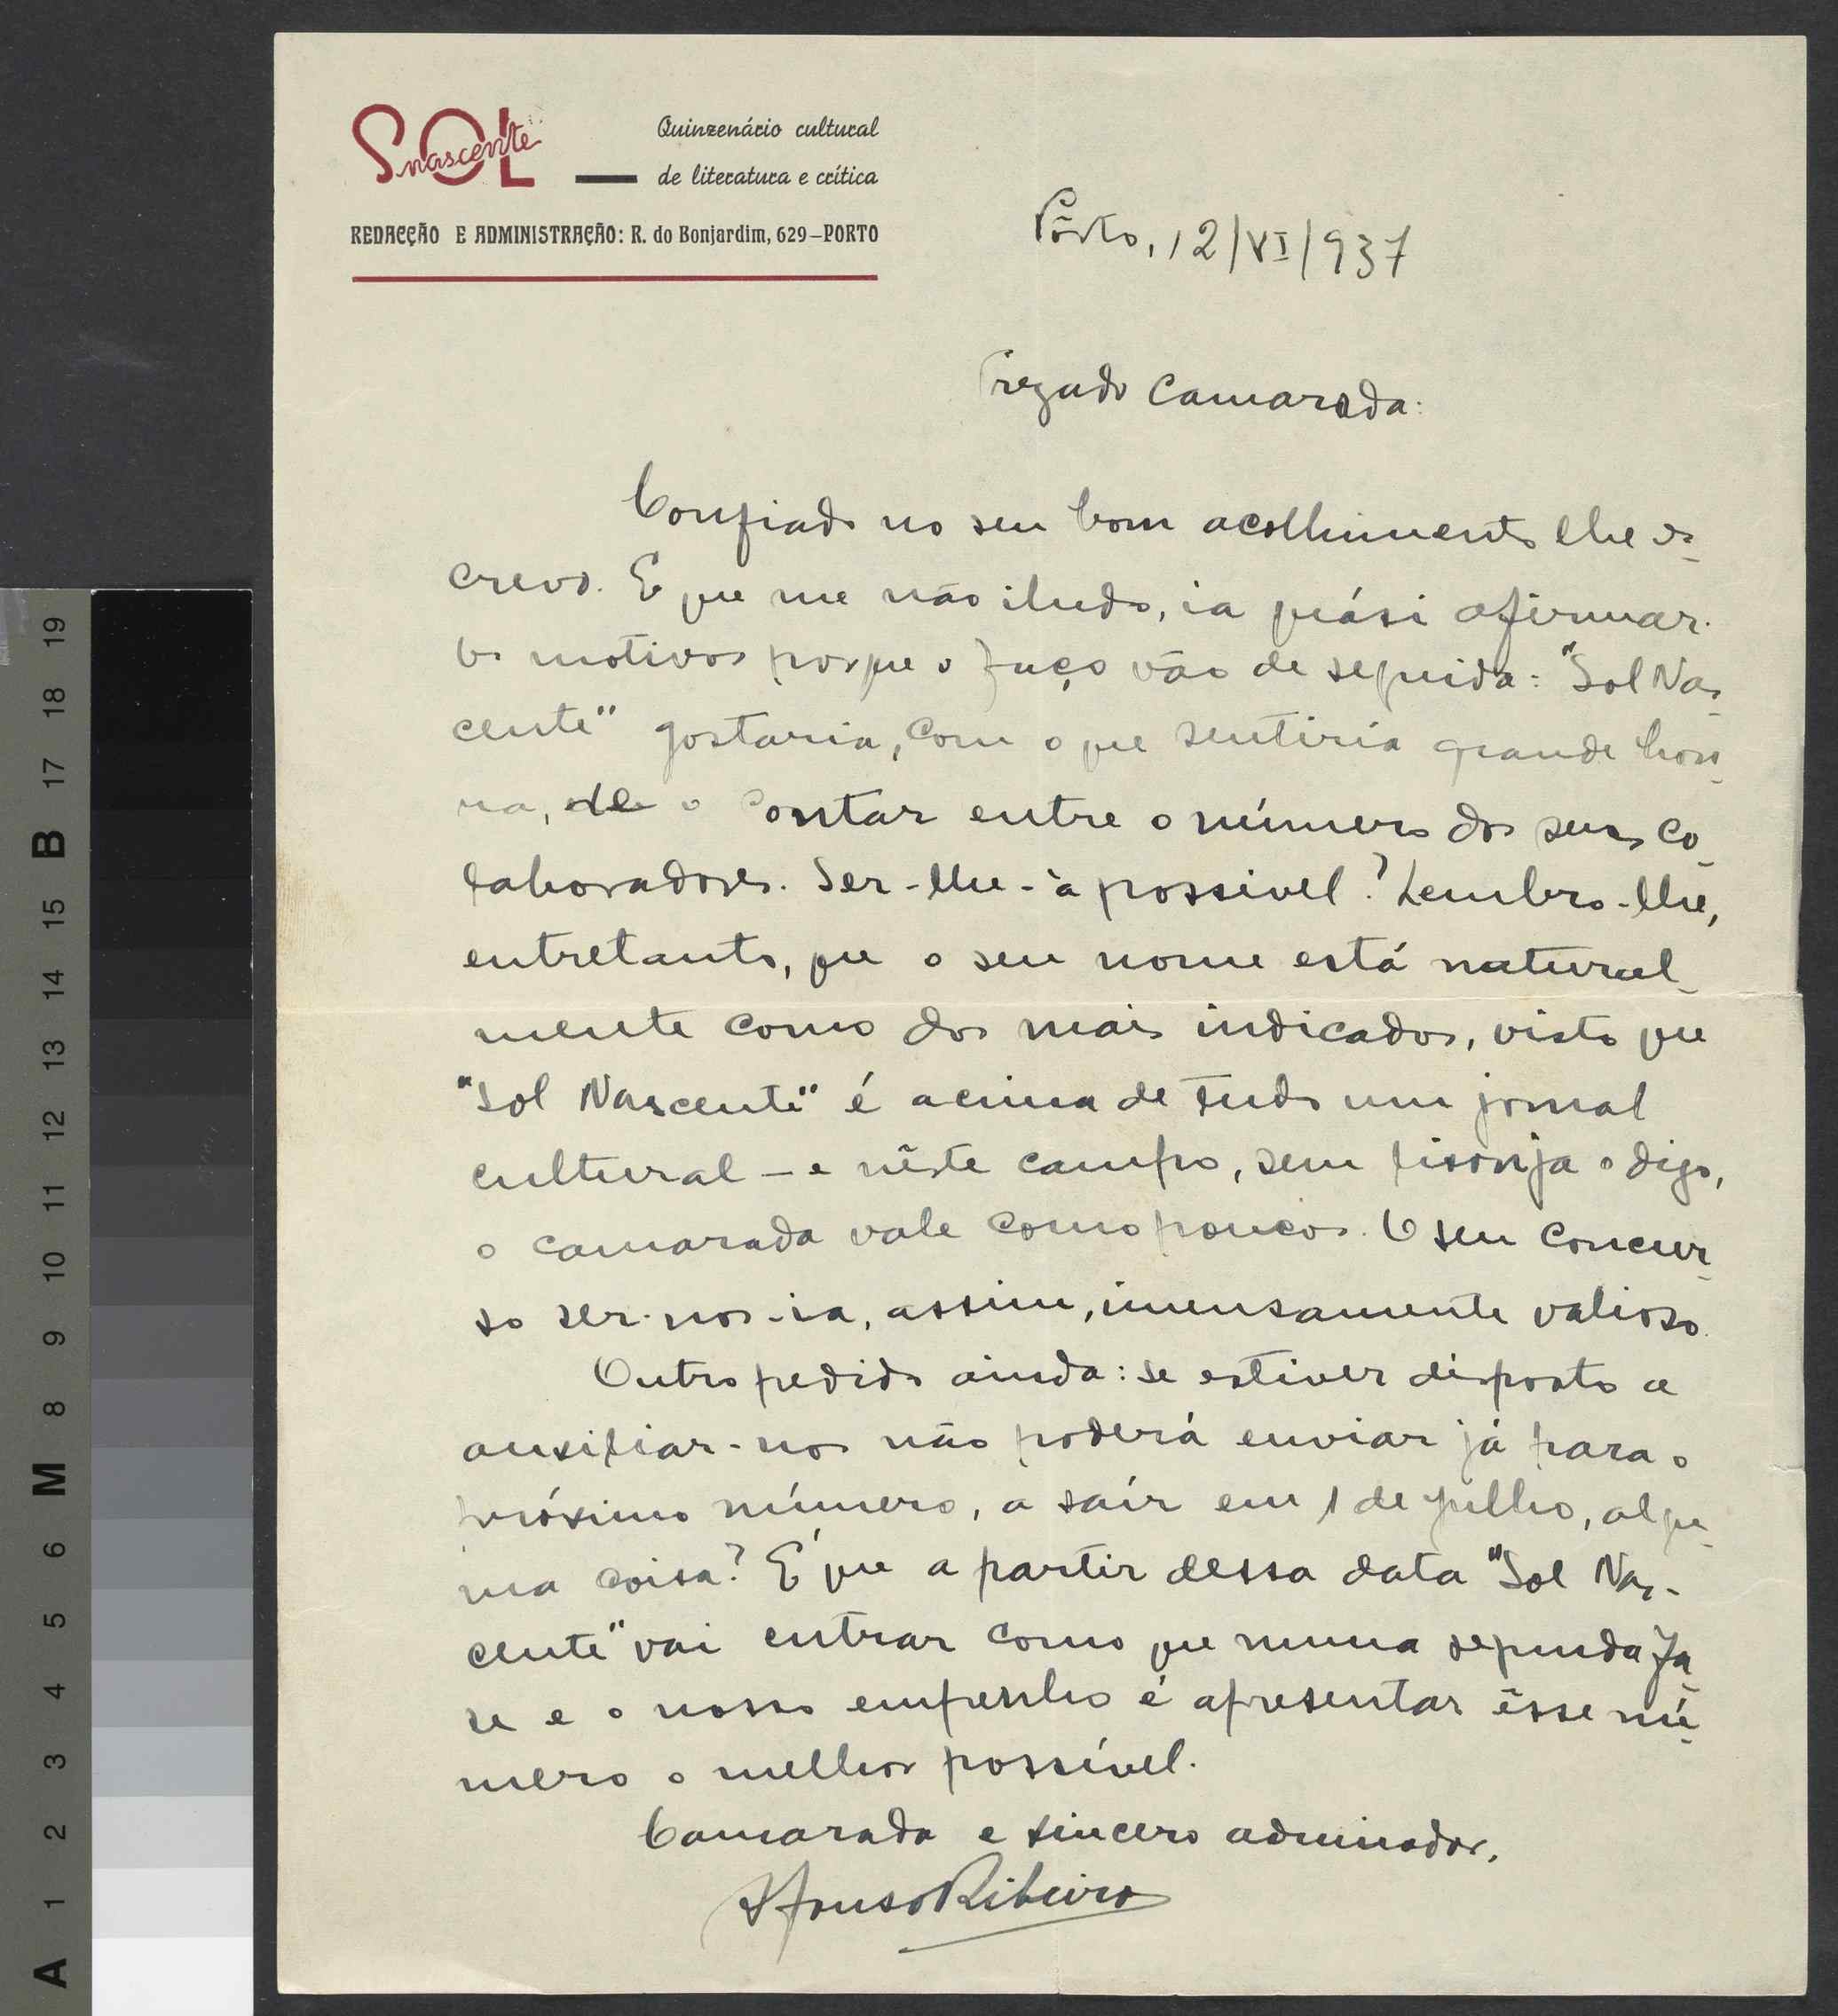 SOL nascente
Quinzenário cultural
de literatura e crítica
REDACÇÃO E ADMINISTRAÇÃO: R. do Bonjardim, 629—PORTO
Pôrto, 12/VI/937
Prezado Camarada:
Confiado no seu bom acolhimento lhe es-
crevo. E que me não iludo, ia quási afirmar.
Os motivos porque o faço vão de seguida: "Sol Nas-
cente" gostaria, com o que sentiria grande hon-
ra, de o contar entre o número dos seus co-
laboradores. Ser-lhe-à possivel? Lembro-lhe,
entretanto, que o seu nome está natural-
mente como dos mais indicados, visto que
"Sol Nascente" é acima de tudo um jornal
cultural — e nêste campo, sem lisonja o digo,
o camarada vale como poucos. O seu concur-
so ser-nos-ia, assim, imensamente valioso.
Outro pedido ainda: se estiver disposto a
auxiliar-nos não poderá enviar já para o
próximo número, a saír em 1 de julho, algu-
ma coisa? É que a partir dessa data "Sol Nas-
cente" vai entrar como que numa segunda fa-
se e o nosso empenho é apresentar êsse nú-
mero o melhor possível.
Camarada e sincero admirador,
Afonso Ribeiro
19
18
17
B
16
15
14
13
12
11
10
9
8
M
6
5
4
3
2
1
A